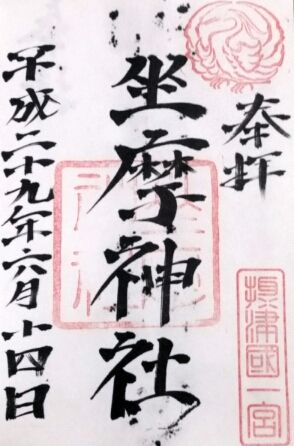 奉拝
攝津國一宮
坐摩神社
平成二十九年六月廿四日